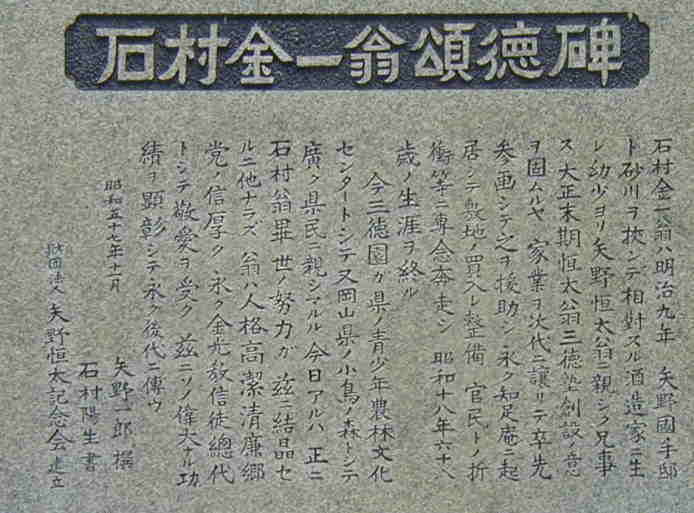 石村金一翁頌徳碑
石村金一翁ハ明治九年 矢野國手邸
ト砂川ヲ挾ンデ相對スル酒造家ニ生
レ幼少ヨリ矢野恒太翁ニ親シク兄事
ス大正末期恒太翁三徳塾創設ノ意
ヲ固ムルヤ家業ヲ次代ニ讓リテ卒先
参画シテ之ヲ援助シ永ク知足庵ニ起
居シテ敷地ノ買入レ整備 官民トノ折
衝等ニ専念奔走シ 昭和十八年六十八
歳ノ生涯ヲ終ル
今三徳園ガ県ノ青少年農林文化
センタートシテ又岡山県ノ小鳥ノ森トシテ
廣ク県民ニ親シマルル今日アルハ 正ニ
石村翁畢世ノ努力ガ 茲ニ結晶セ
ルニ他ナラズ 翁ハ人格高潔清廉郷
党ノ信厚ク 永ク金光教信徒總代
トシテ敬愛ヲ受ク 茲ニソノ偉大ナル功
績ヲ顕彰シテ永ク後代ニ傳ウ
昭和五十七年十一月
矢野一郎 撰
石村陽生 書
財団法人 矢野恒太記念会 建立